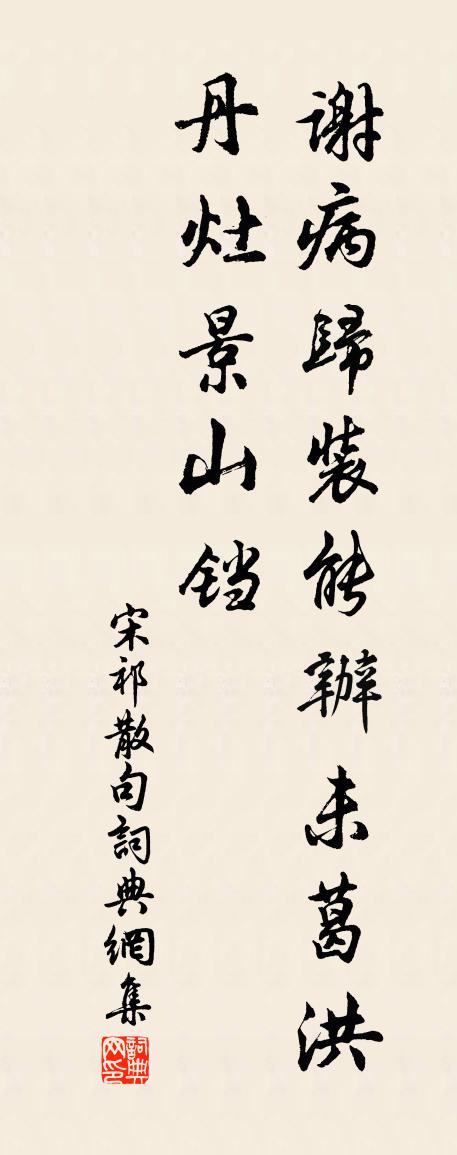 谢病歸装能辦未葛洪
丹灶景山铛
宋祁散句詞典網集
詞典网印